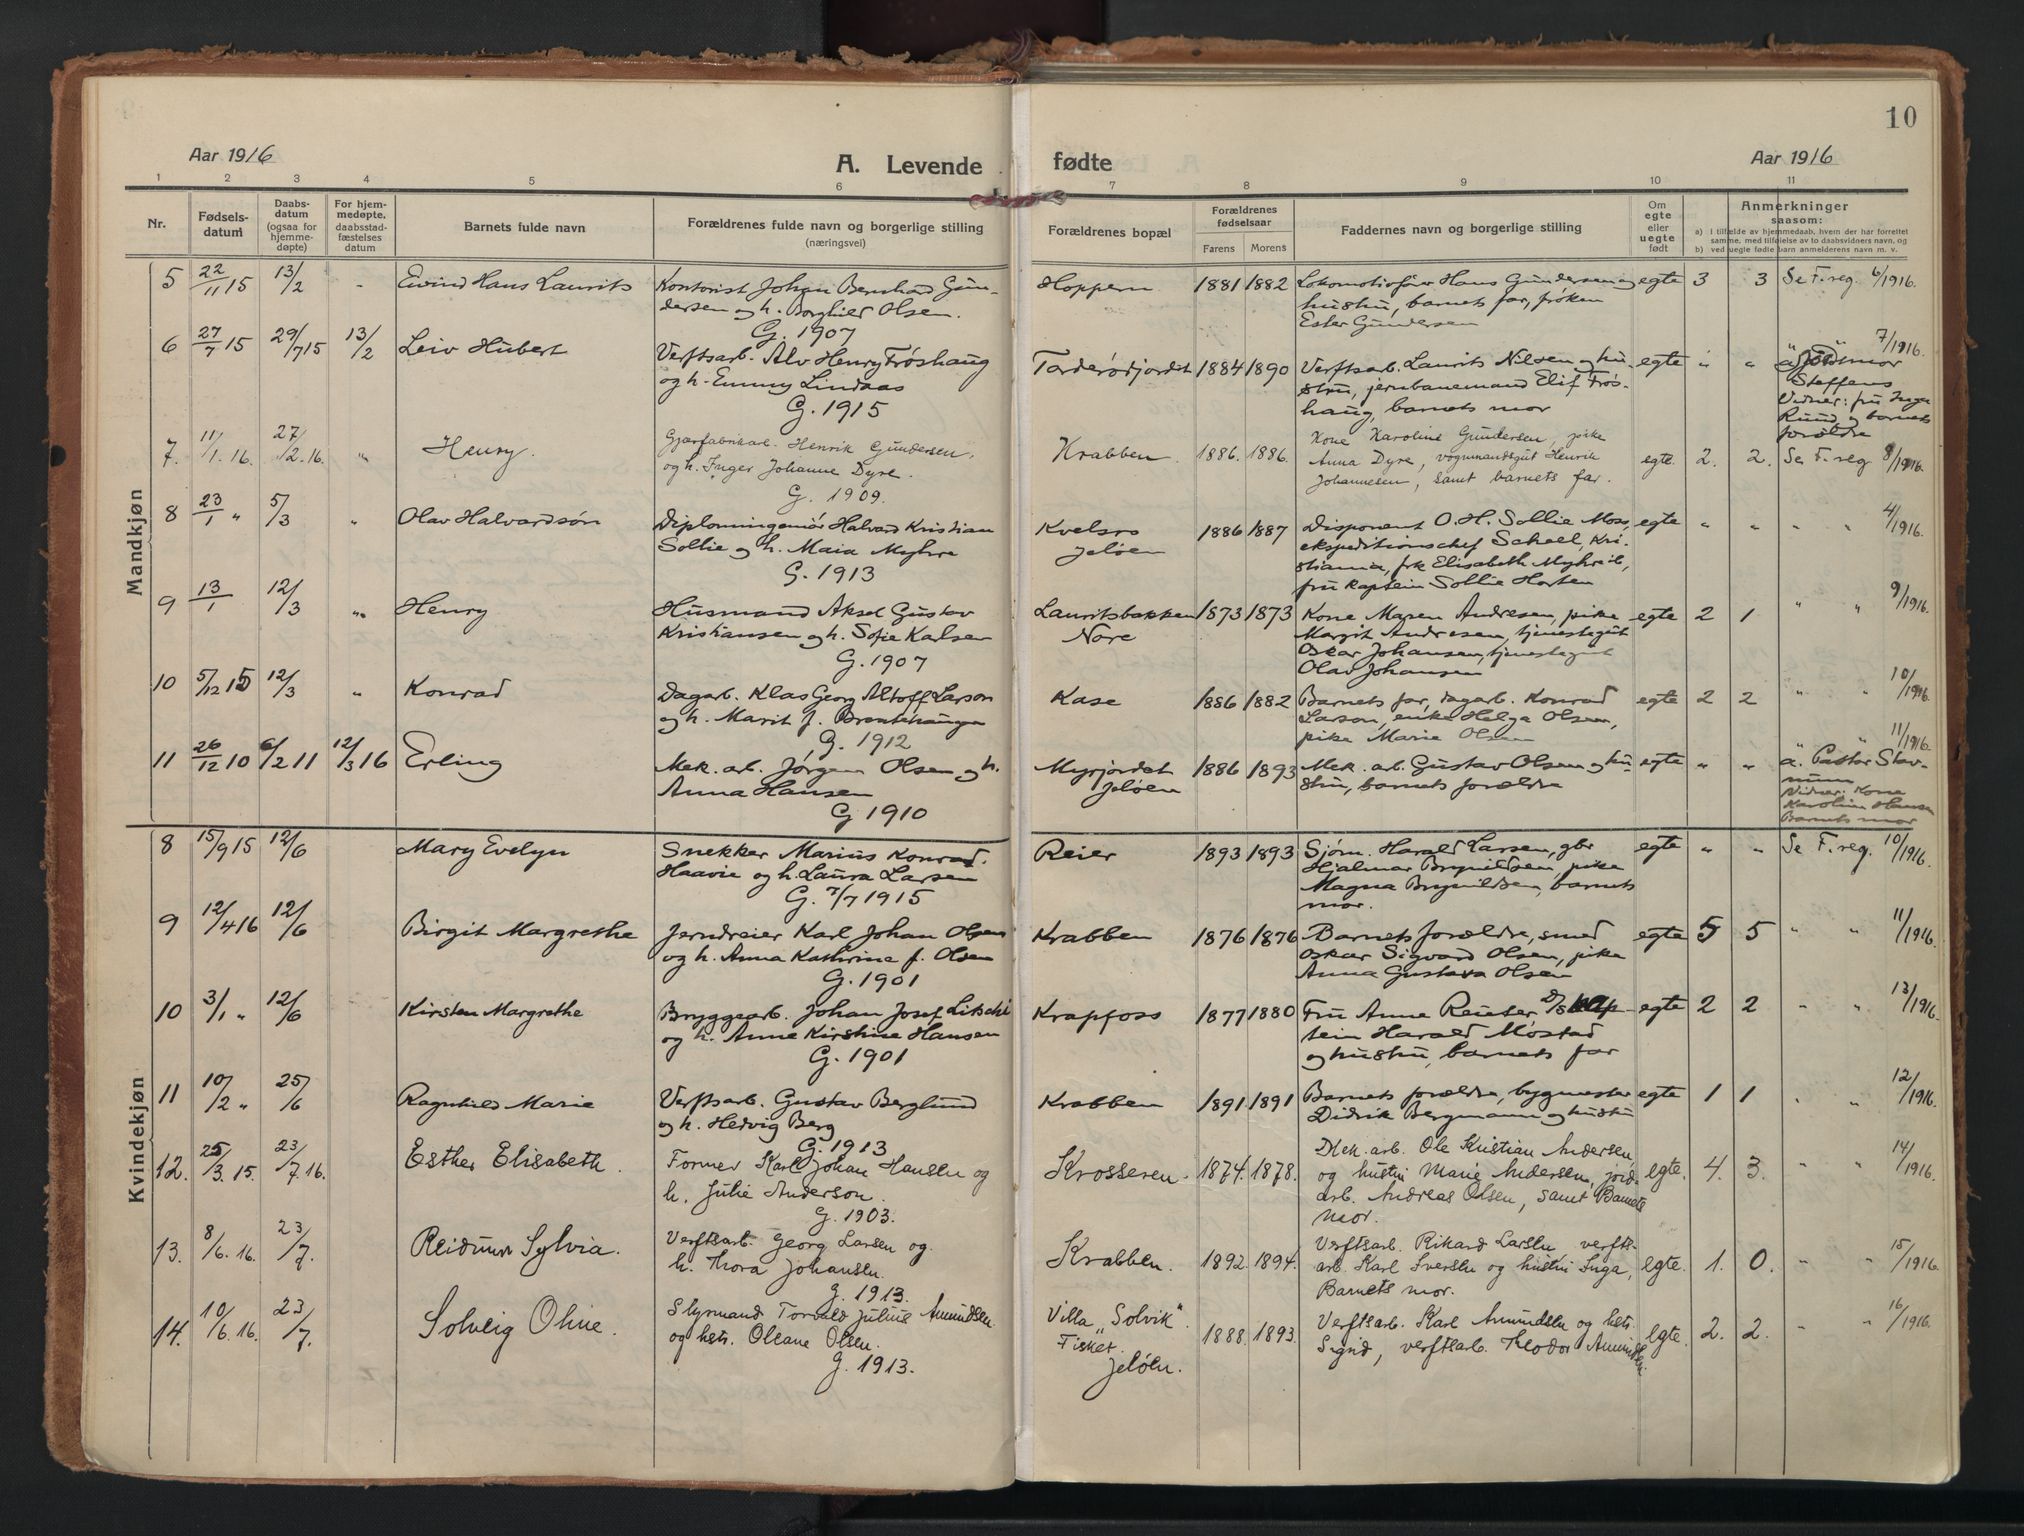 10
Aar 1916
A. Levende fødte
Aar 1916
1 2 3 4 5 6 7 8 9 10 11
Nr.
Fødsels-
datum
Daabs-
datum
(ogsaa for
hjemme-
døpte)
For hjem-
medøpte,
daabsstad-
fæstelses
datum
Barnets fulde navn
Forældrenes fulde navn og borgerlige stilling
(næringsvei)
Forældrenes bopæl
Forældrenes
fødselsaar
Farens Morens
Faddernes navn og borgerlige stilling
Om
egte
eller
uegte
født
Anmerkninger
saasom:
a) I tilfælde av hjemmedaab, hvem der har forrettet
samme, med tilføielse av to daabsvidners navn, og
b) ved uegte fødte barn anmelderens navn m. v.
Mandkjøn
5 22/11 15 13/2 - Eivind Hans Laurits Kontorist Johan Bernhard Gun- Hoppern 1881 1882 Lokomotivfører Hans Gundersen og egte 3 3 Se F. reg. 6/1916.
dersen og h. Borghild Olsen. hustru, barnets far, frøken
G. 1907 Ester Gundersen
6 27/7 15 29/7 15 13/2 Leiv Hubert Verftsarb. Alv Henry Frøshaug Torderødjordet 1884 1890 Verftsarb. Laurits Nilsen og hu- egte " " " 7/1916.
og h. Emmy Lindaas stru, jernbanemand Elif Frøs- Steffens
G. 1915 haug, barnets mor Vidner: fru Inga
Ruud og barnets
forældre
7. 11/1. 16. 27/2. 16. " Henry. Gjærfabrikarb. Henrik Gundersen, Krabben 1886. 1886. Kone Karoline Gundersen, pike egte. 2. 2. Se F. reg 8/1916.
og h. Inger Johanne Dyre. Anna Dyre, vognmandsgut Henrik
G. 1909. Johannesen, samt barnets far.
8 23/1 " 5/3 " Olav Halvardsøn Diplomingeniør Halvard Kristian Kvelsro 1886 1887 Disponent O. H. Sollie Moss, egte " " " " 4/1916.
Sollie og h. Maia Myhre Jeløen ekspeditionschef Scheel, Kri-
G. 1913 stiania, frk Elisabeth Myhre ib,
fru kaptein Sollie Horten
9 13/1 12/3 " Henry Husmand Aksel Gustav Lauritsbakken 1873 1873 Kone Maren Andresen, pike egte 2 1 " " 9/1916.
Kristiansen og h. Sofie Karlsen Nore Margit Andresen, tjenestegut
G. 1907 Oskar Johansen, tjenestegut
Olav Johansen
10 5/12 15 12/3 " Konrad Dagarb. Klas Georg Altoff Larson Kase 1886 1882 Barnets far, dagarb. Konrad egte 2 2 " " 10/1916.
og h. Marit f. Larson, enke Helga Olsen,
G. 1912 pike Marie Olsen
11 26/12 10 6/2 11 12/3 16 Erling Mek. arb. Jørgen Olsen og h. Myrjordet 1886 1893 Mek. arb. Gustav Olsen og hu- egte " " 11/1916.
Anna Hansen Jeløen stru, barnets forældre a. Pastor Stav-
G 1910 num
Vidner: Kone
Karoline Hansen
Barnets mor
Kvindekjøn
8 15/9 15 12/6 Mary Evelyn Snekker Marius Konrad Reier 1893 1893 Sjøm. Harald Larsen, gbr egte " " Se F. reg. 10/1916.
Haavie og h. Laura Larsen Hjalmar Brynildsen, pike
G. 7/7 1915 Magna Brynildsen, barnets
mor.
9 12/4 16 12/6 Birgit Margrethe Jerndreier Karl Johan Olsen Krabben 1876 1876 Barnets forældre, smed egte 5 5 " " 11/1916.
og h. Anna Kathrine f. Olsen Oskar Sigvard Olsen, pike
G. 1901 Anna Gustava Olsen
10 3/1 " 12/6 Kirsten Margrethe Bryggearb. Johan Josef Krapfoss 1877 1880 Fru Anne Reuter D/S kap- egte 2 2 " " 13/1916.
og h. Anne Kirstine Hansen tein Harald Møstad
G. 1901 og hustru, barnets far
11 10/2 " 25/6 Ragnhild Marie Verftsarb. Gustav Berglund Krabben 1891 1891 Barnets forældre, bygmester egte 1 1 " " 12/1916.
og h. Hedvig Berg Didrik Bergmann og hustru
G. 1913
12. 25/3. 15. 23/7. 16. Esther Elisabeth. Former Karl Johan Hansen og Krosseren. 1874. 1878. Mek. arb. Ole Kristian Andersen, egte. 4. 3. " " 14/1916.
h. Julie Anderson. og hustru Marie Andersen, jord-
G. 1903. arb. Andreas Olsen, samt Barnets
mor.
13. 8/6. 16. 23/7. Reidunn Sylvia. Verftsarb. Georg Larsen og Krabben. 1892. 1894. Verftsarb. Rikard Larsen verfts- egte. 1. 0. " " 15/1916.
h. Thora Johansen. arb. Karl Iversen og hustru Inga,
G. 1913. Barnets mor.
14. 10/6. 16. 23/7. Solveig Oline. Styrmand Torvald Julius Amundsen Villa „Solvik“ 1888. 1893. Verftsarb. Karl Amundsen og hstr. egte. 2. 2. " " 16/1916.
og hstr. Oleane Olsen. Fisket. Sigrid, verftsarb. Theodor Amundsen
G. 1913. Jeløen.